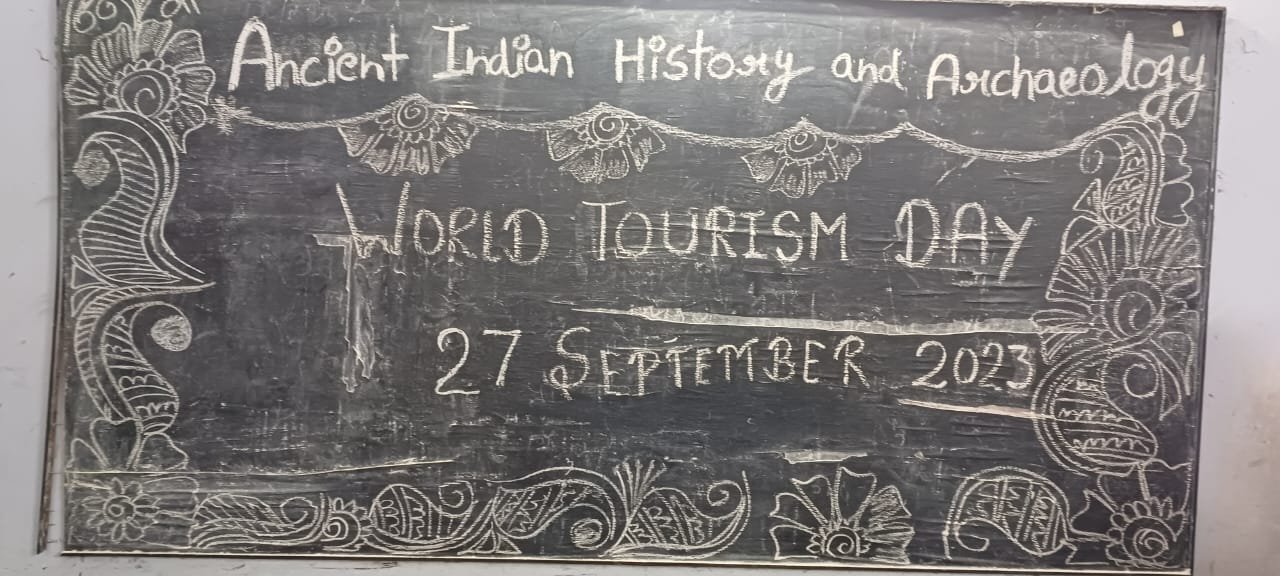 Ancient Indian History and Archaeology
WORLD TOURISM DAY
27 SEPTEMBER 2023